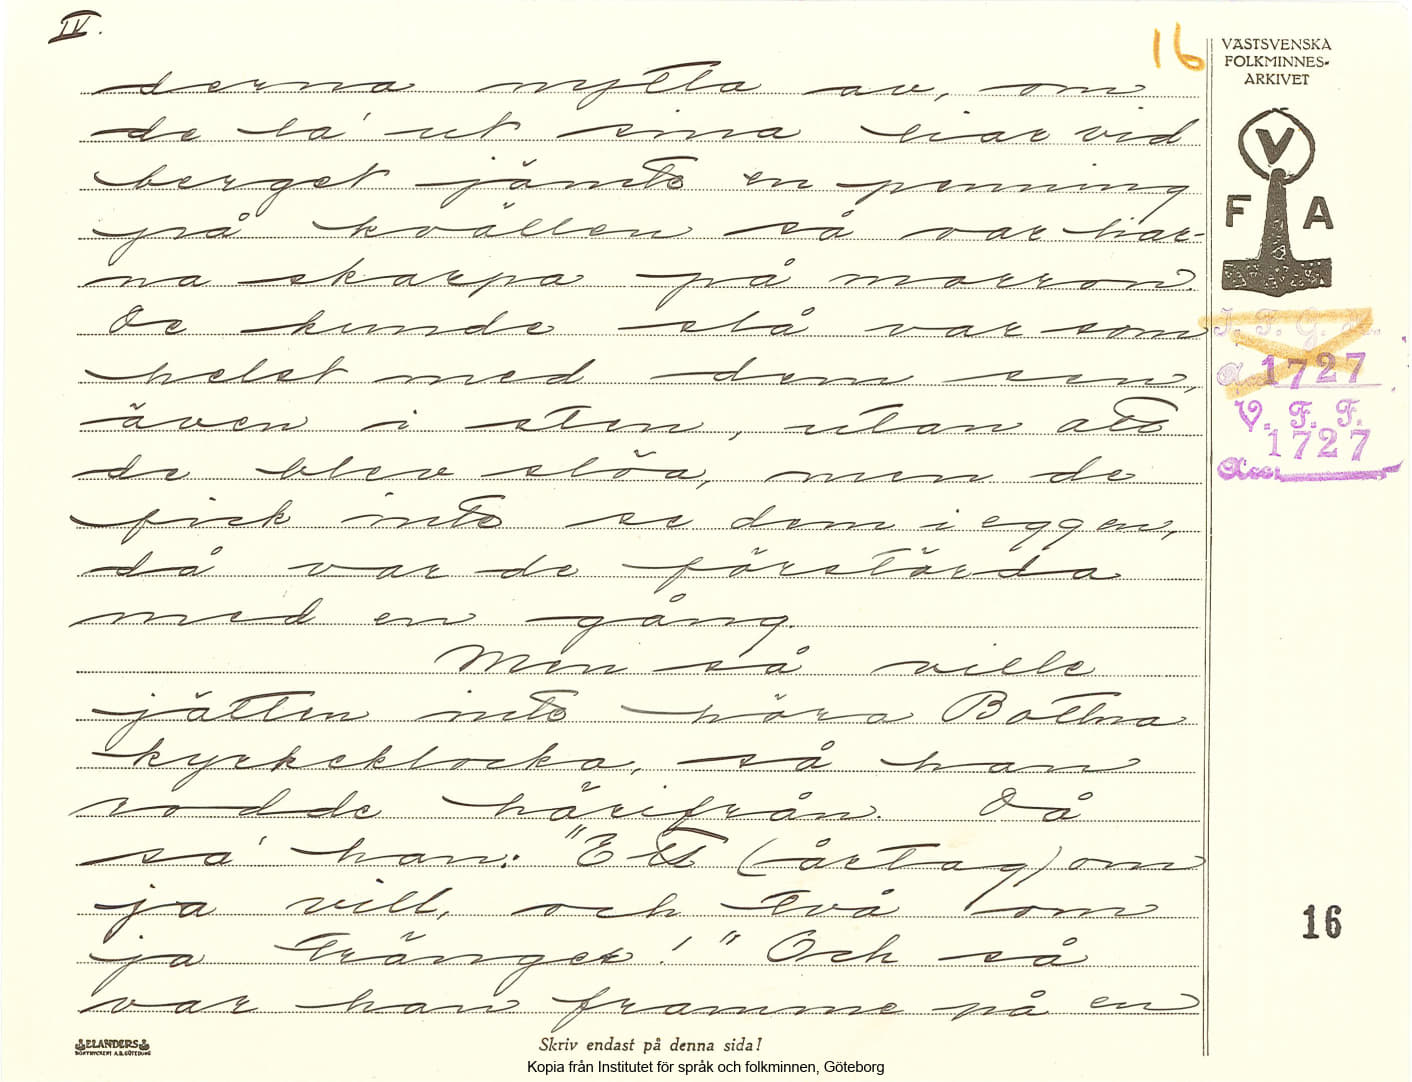 IV.
16
VÄSTSVENSKA
FOLKMINNES-
ARKIVET
V
F A
derna nytta av, om
de la' ut sina liar vid
berget jämte en penning
på kvällen så var liar-
na skarpa på morron.
De kunde slå var som
helst med dem sen,
även i sten, utan att
de blev slöa, men de
fick inte se dem i eggen,
då var de förstörda
med en gång.
Men så ville
jätten inte höra Bottna
kyrkeklocka, så han
rodde härifrån. Då
sa' han: "Ett (årtag) om
ja vill, och två om
ja tränger!" Och så
var han framme på en
I. F. G. H.
a 1727
V. F. F.
1727
Acc.
16
ELANDERS
BOKTRYCKERI A.B. GÖTEBORG
Skriv endast på denna sida!
Kopia från Institutet för språk och folkminnen, Göteborg